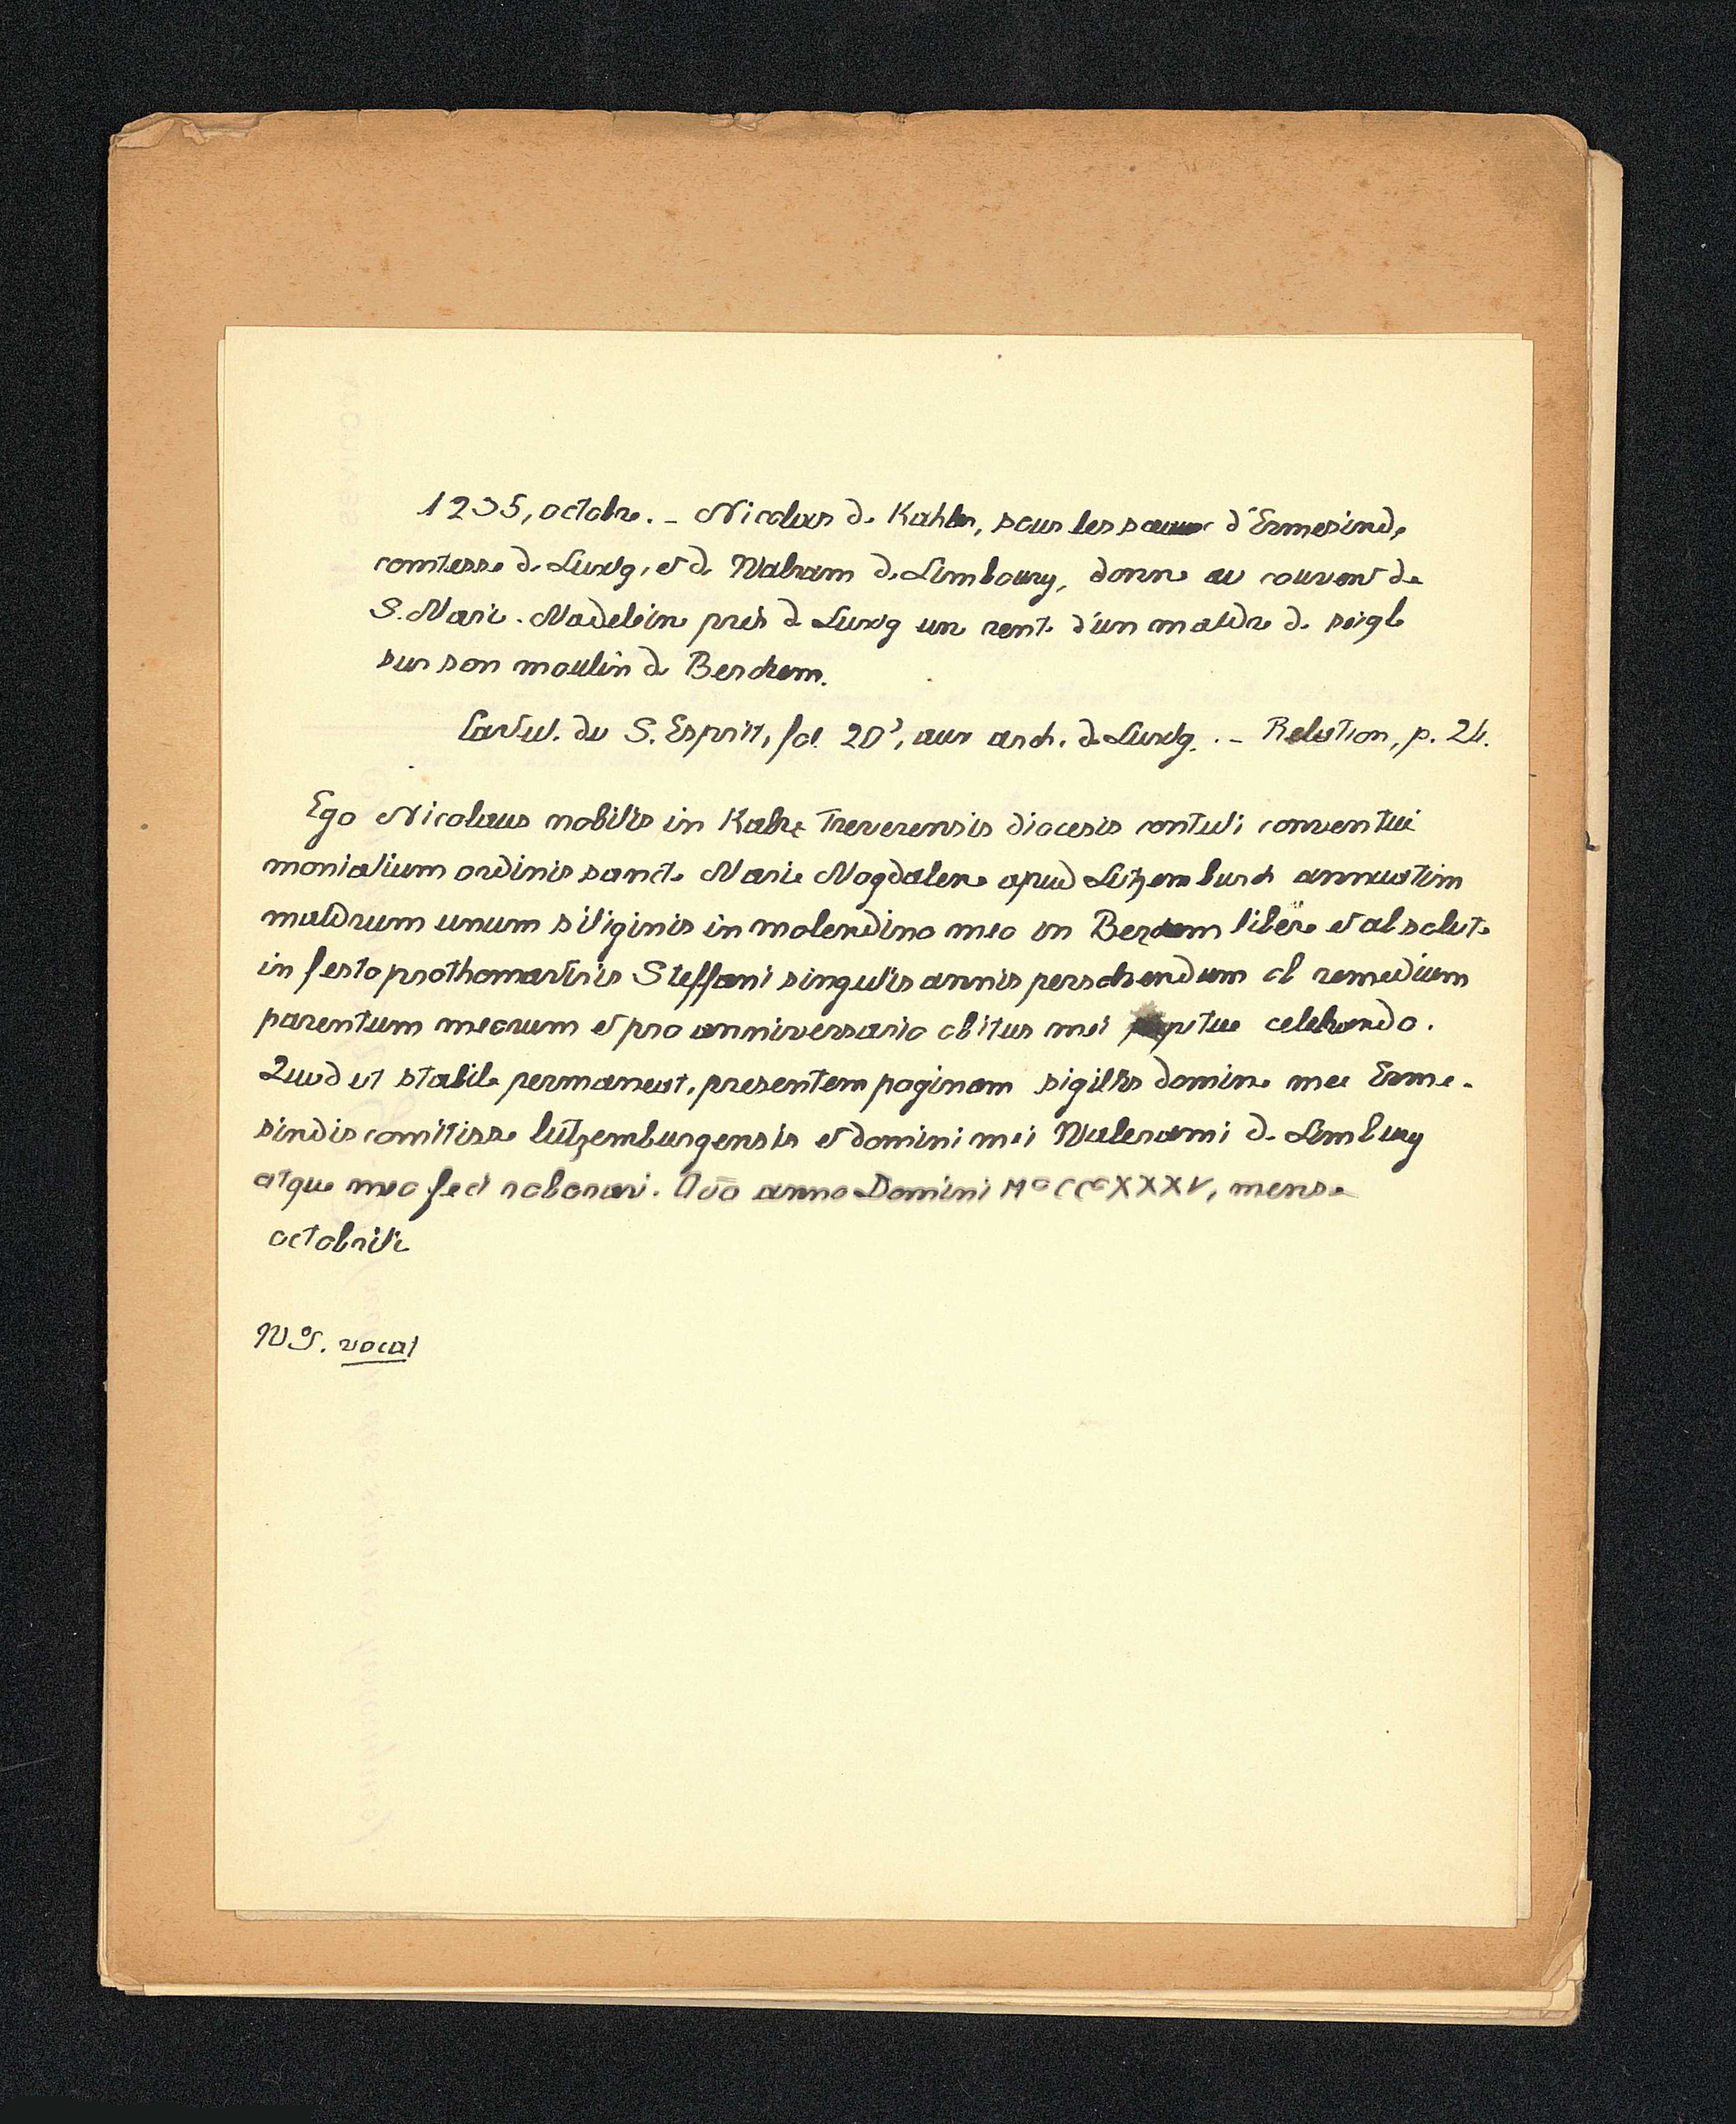 1235, octobre. – Nicolas de Kahler, sous les sceaux d'Ermesinde,
comtesse de Luxbg, et de Walram de Limbourg, donne au couvent de
S. Marie-Madeleine près de Luxbg une rente d'un maldre de seigle
sur son moulin de Berchem.
Cartul. du S. Esprit, fol. 20², aux arch. de Luxbg. – Relation, p. 24.
Ego Nicolaus nobilis in Kalre Treverensis diocesis contuli conventui
monialium ordinis sancte Marie Magdalene apud Lutzemburch annuatim
maldrum unum siliginis in molendino meo in Berchem libere et absolute
in festo prothomartiris Steffani singulis annis persolvendum ob remedium
parentum meorum et pro anniversario obitus mei perpetue celebrando.
Quod ut stabile permaneat, presentem paginam sigillis domine mee Erme-
sindis comitisse lutzemburgensis et domini mei Walerami de Limburg
atque meo feci roborari. Actō anno Domini M° CC° XXXV, mense
octobrili